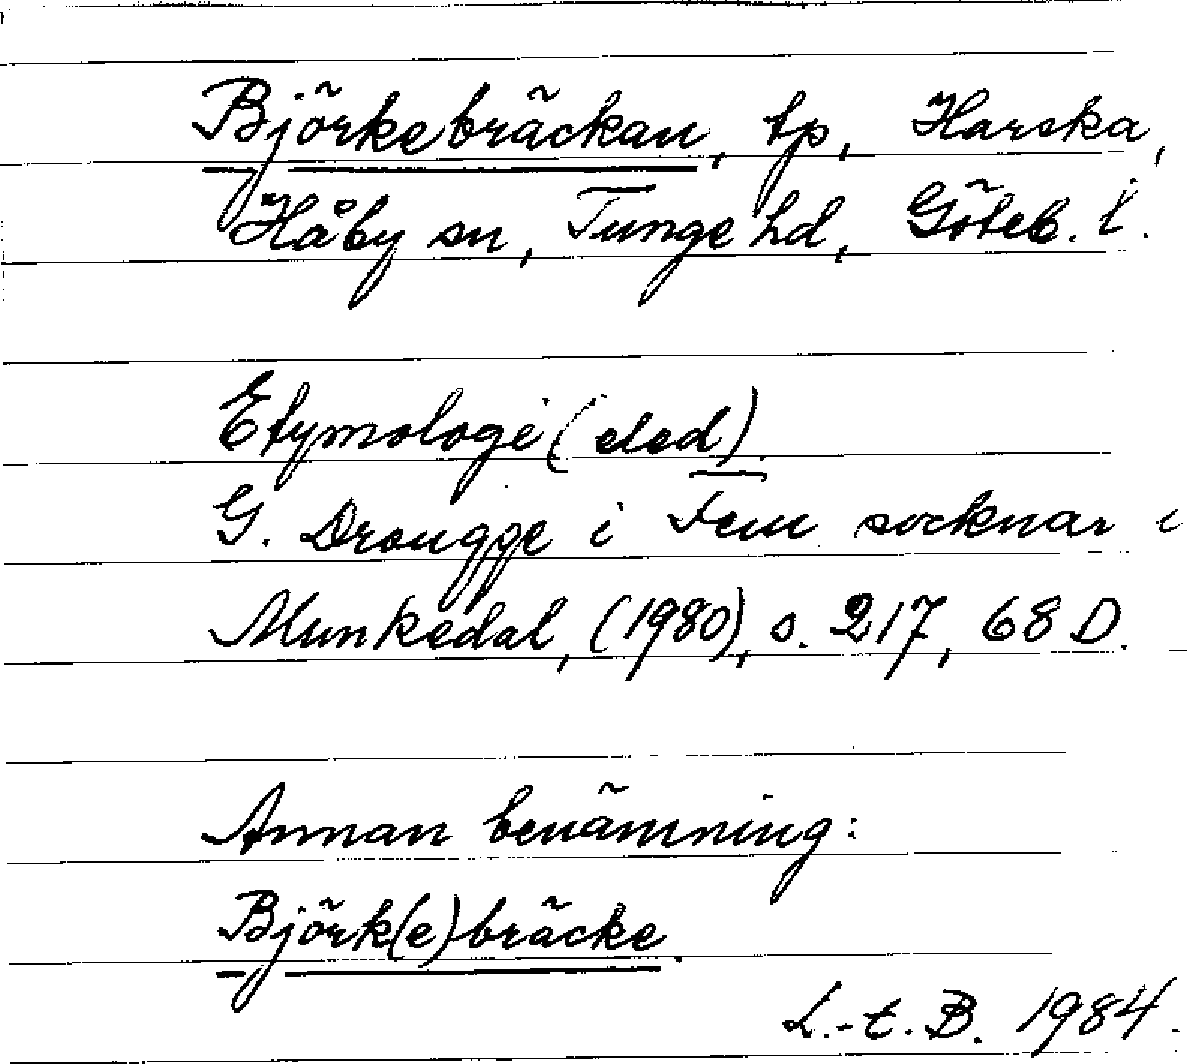 Björkebräckan, tp, Harska,
Håby sn, Tunge hd, Göteb. l.
Etymologi (eled)
G. Drougge i Fem socknar i
Munkedal, (1980), s. 217, 68 D.
Annan benämning:
Björk(e)bräcke.
L.-E. B. 1984.